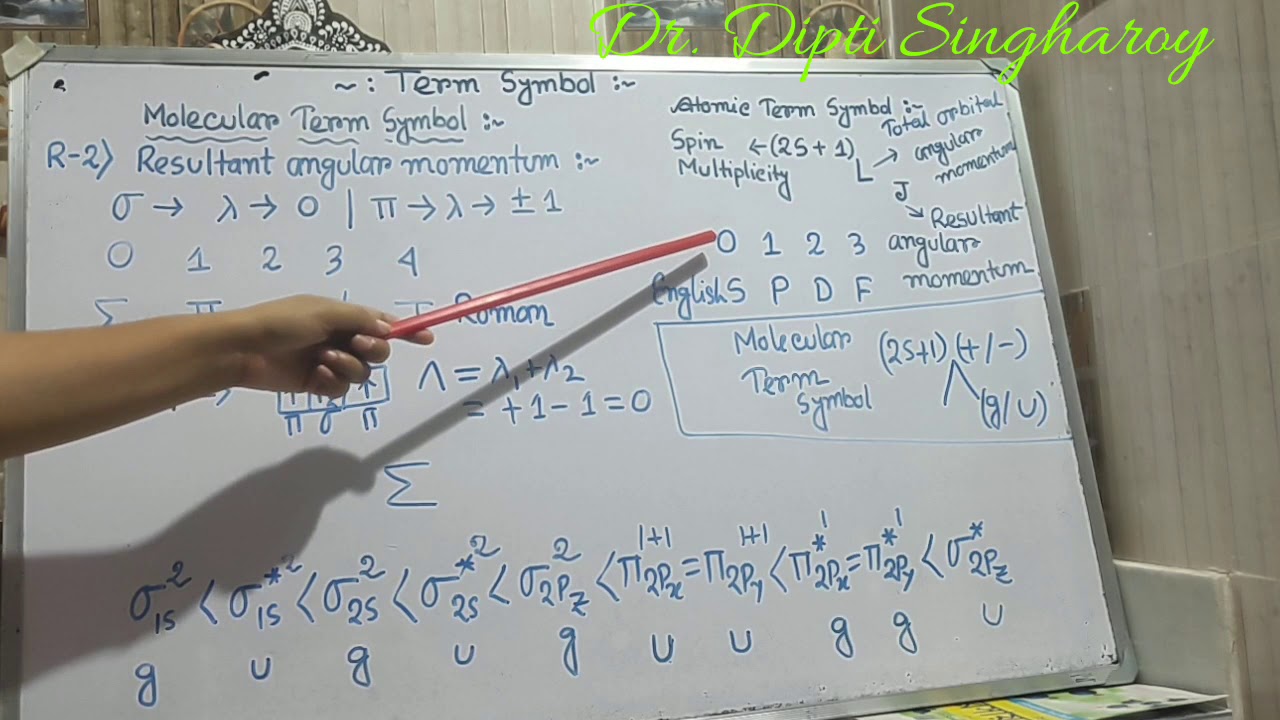 Dr. Dipti Singharoy
~: Term Symbol :~
Molecular Term Symbol :~
R-2) Resultant angular momentum :~
σ → λ → 0 | π → λ → ±1
0 1 2 3 4
Σ π Roman
Λ = λ₁+λ₂
= +1-1=0
π σ π
Σ
Atomic Term Symbol :~
Spin Multiplicity ← (2S+1)
L → Total orbital angular momentum
J → Resultant angular momentum
0 1 2 3
English S P D F
Molecular Term Symbol
(2S+1) Λ (+/-) (g/u)
σ1s² < σ1s*² < σ2s² < σ2s*² < σ2Pz² < π2Px¹⁺¹ = π2Py¹⁺¹ < π*2Px¹ = π*2Py¹ < σ*2Pz
g u g u g u u g g u